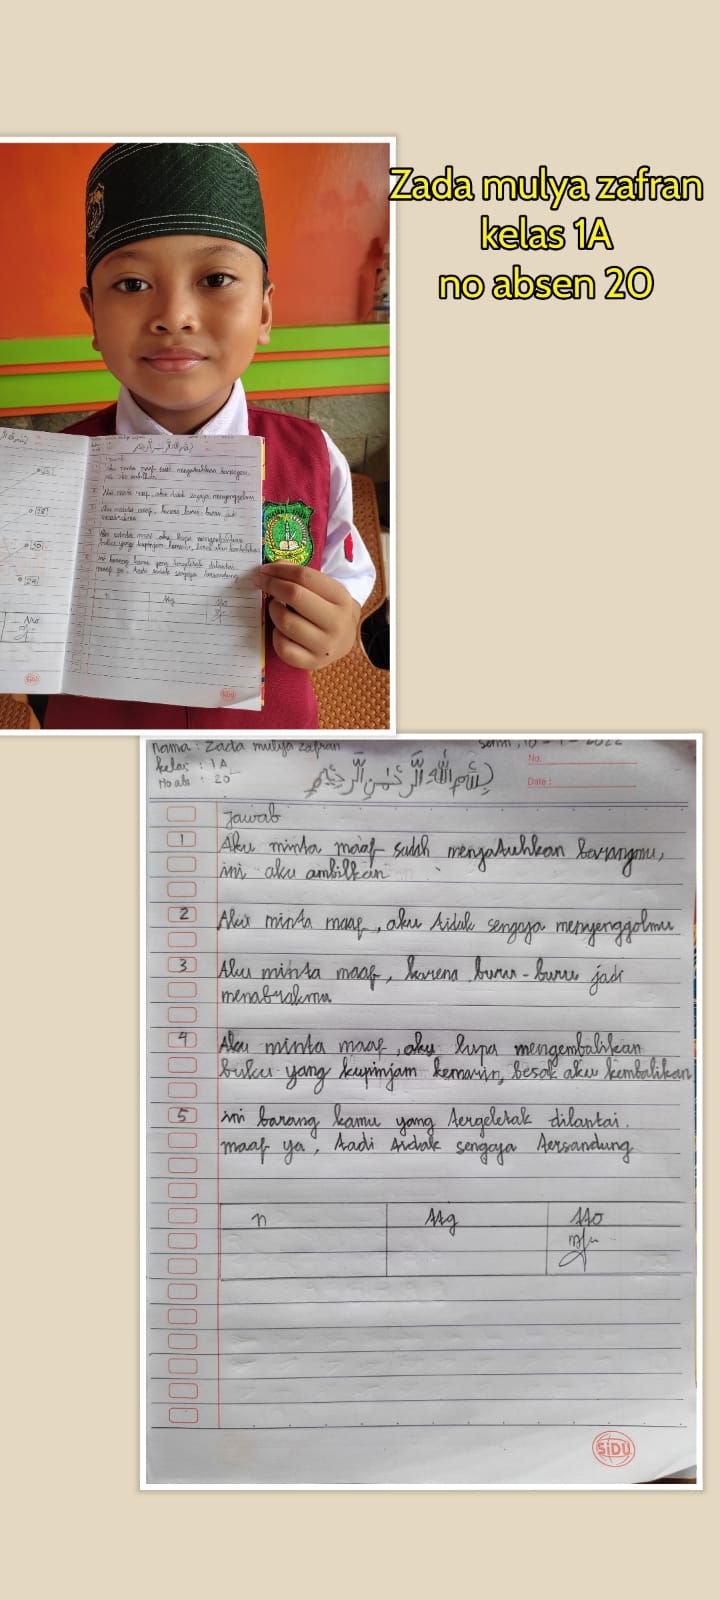 Zada mulya zafran
kelas 1A
no absen 20
nama : Zada mulya zafran
kelas : 1A
No abs : 20
No.
Date :
بِسْمِ اللَّهِ الرَّحْمَٰنِ الرَّحِيمِ
Jawab
1 Aku minta maaf sudah menjatuhkan barangmu,
ini aku ambilkan
2 Aku minta maaf, aku tidak sengaja menyenggolmu
3 Aku minta maaf, karena buru-buru jadi
menabrakmu
4 Aku minta maaf, aku lupa mengembalikan
buku yang kupinjam kemarin, besok aku kembalikan
5 ini barang kamu yang tergeletak dilantai.
maaf ya, tadi tidak sengaja tersandung
n
SiDU